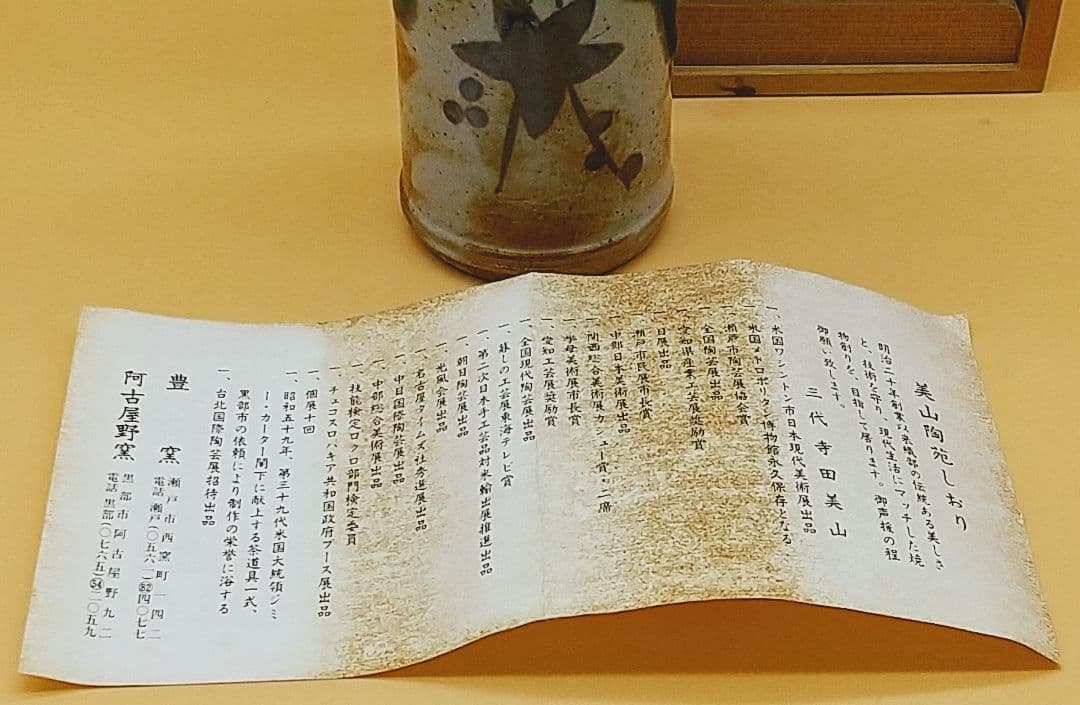 美山陶苑しおり
明治二十年創業以来織部の伝統ある美しさ
と、技術を守り、現代生活にマッチした焼
物創りを、目指して居ります。御声援の程
御願い致します。
三代 寺田美山
一、米国ワシントン市日本現代美術展出品
一、米国メトロポリタン博物館永久保存となる
一、瀬戸市陶芸展協会賞
一、全国陶芸展出品
一、愛知県産業工芸展奨励賞
一、日展出品
一、瀬戸市民展市長賞
一、中部日本美術展出品
一、関西総合美術展カシュー賞・二席
一、挙母美術展市長賞
一、愛知工芸展奨励賞
一、全国現代陶芸展出品
一、暮しの工芸展東海テレビ賞
一、第二次日本手工芸品対米輸出展推進出品
一、朝日陶芸展出品
一、光風会展出品
一、名古屋タイムズ社秀選展出品
一、中日国際陶芸展出品
一、中部総合美術展出品
一、技能検定ロクロ部門検定委員
一、チェコスロバキア共和国政府ブース展出品
一、個展十回
一、昭和五十九年、第三十九代米国大統領ジミ
ー・カーター閣下に献上する茶道具一式、
黒部市の依頼により制作の栄誉に浴する
一、台北国際陶芸展招待出品
豊窯 瀬戸市西窯町一四二
電話 瀬戸(〇五六一)82四〇七七
阿古屋野窯 黒部市阿古屋野九二
電話 黒部(〇七六五)54二〇五九